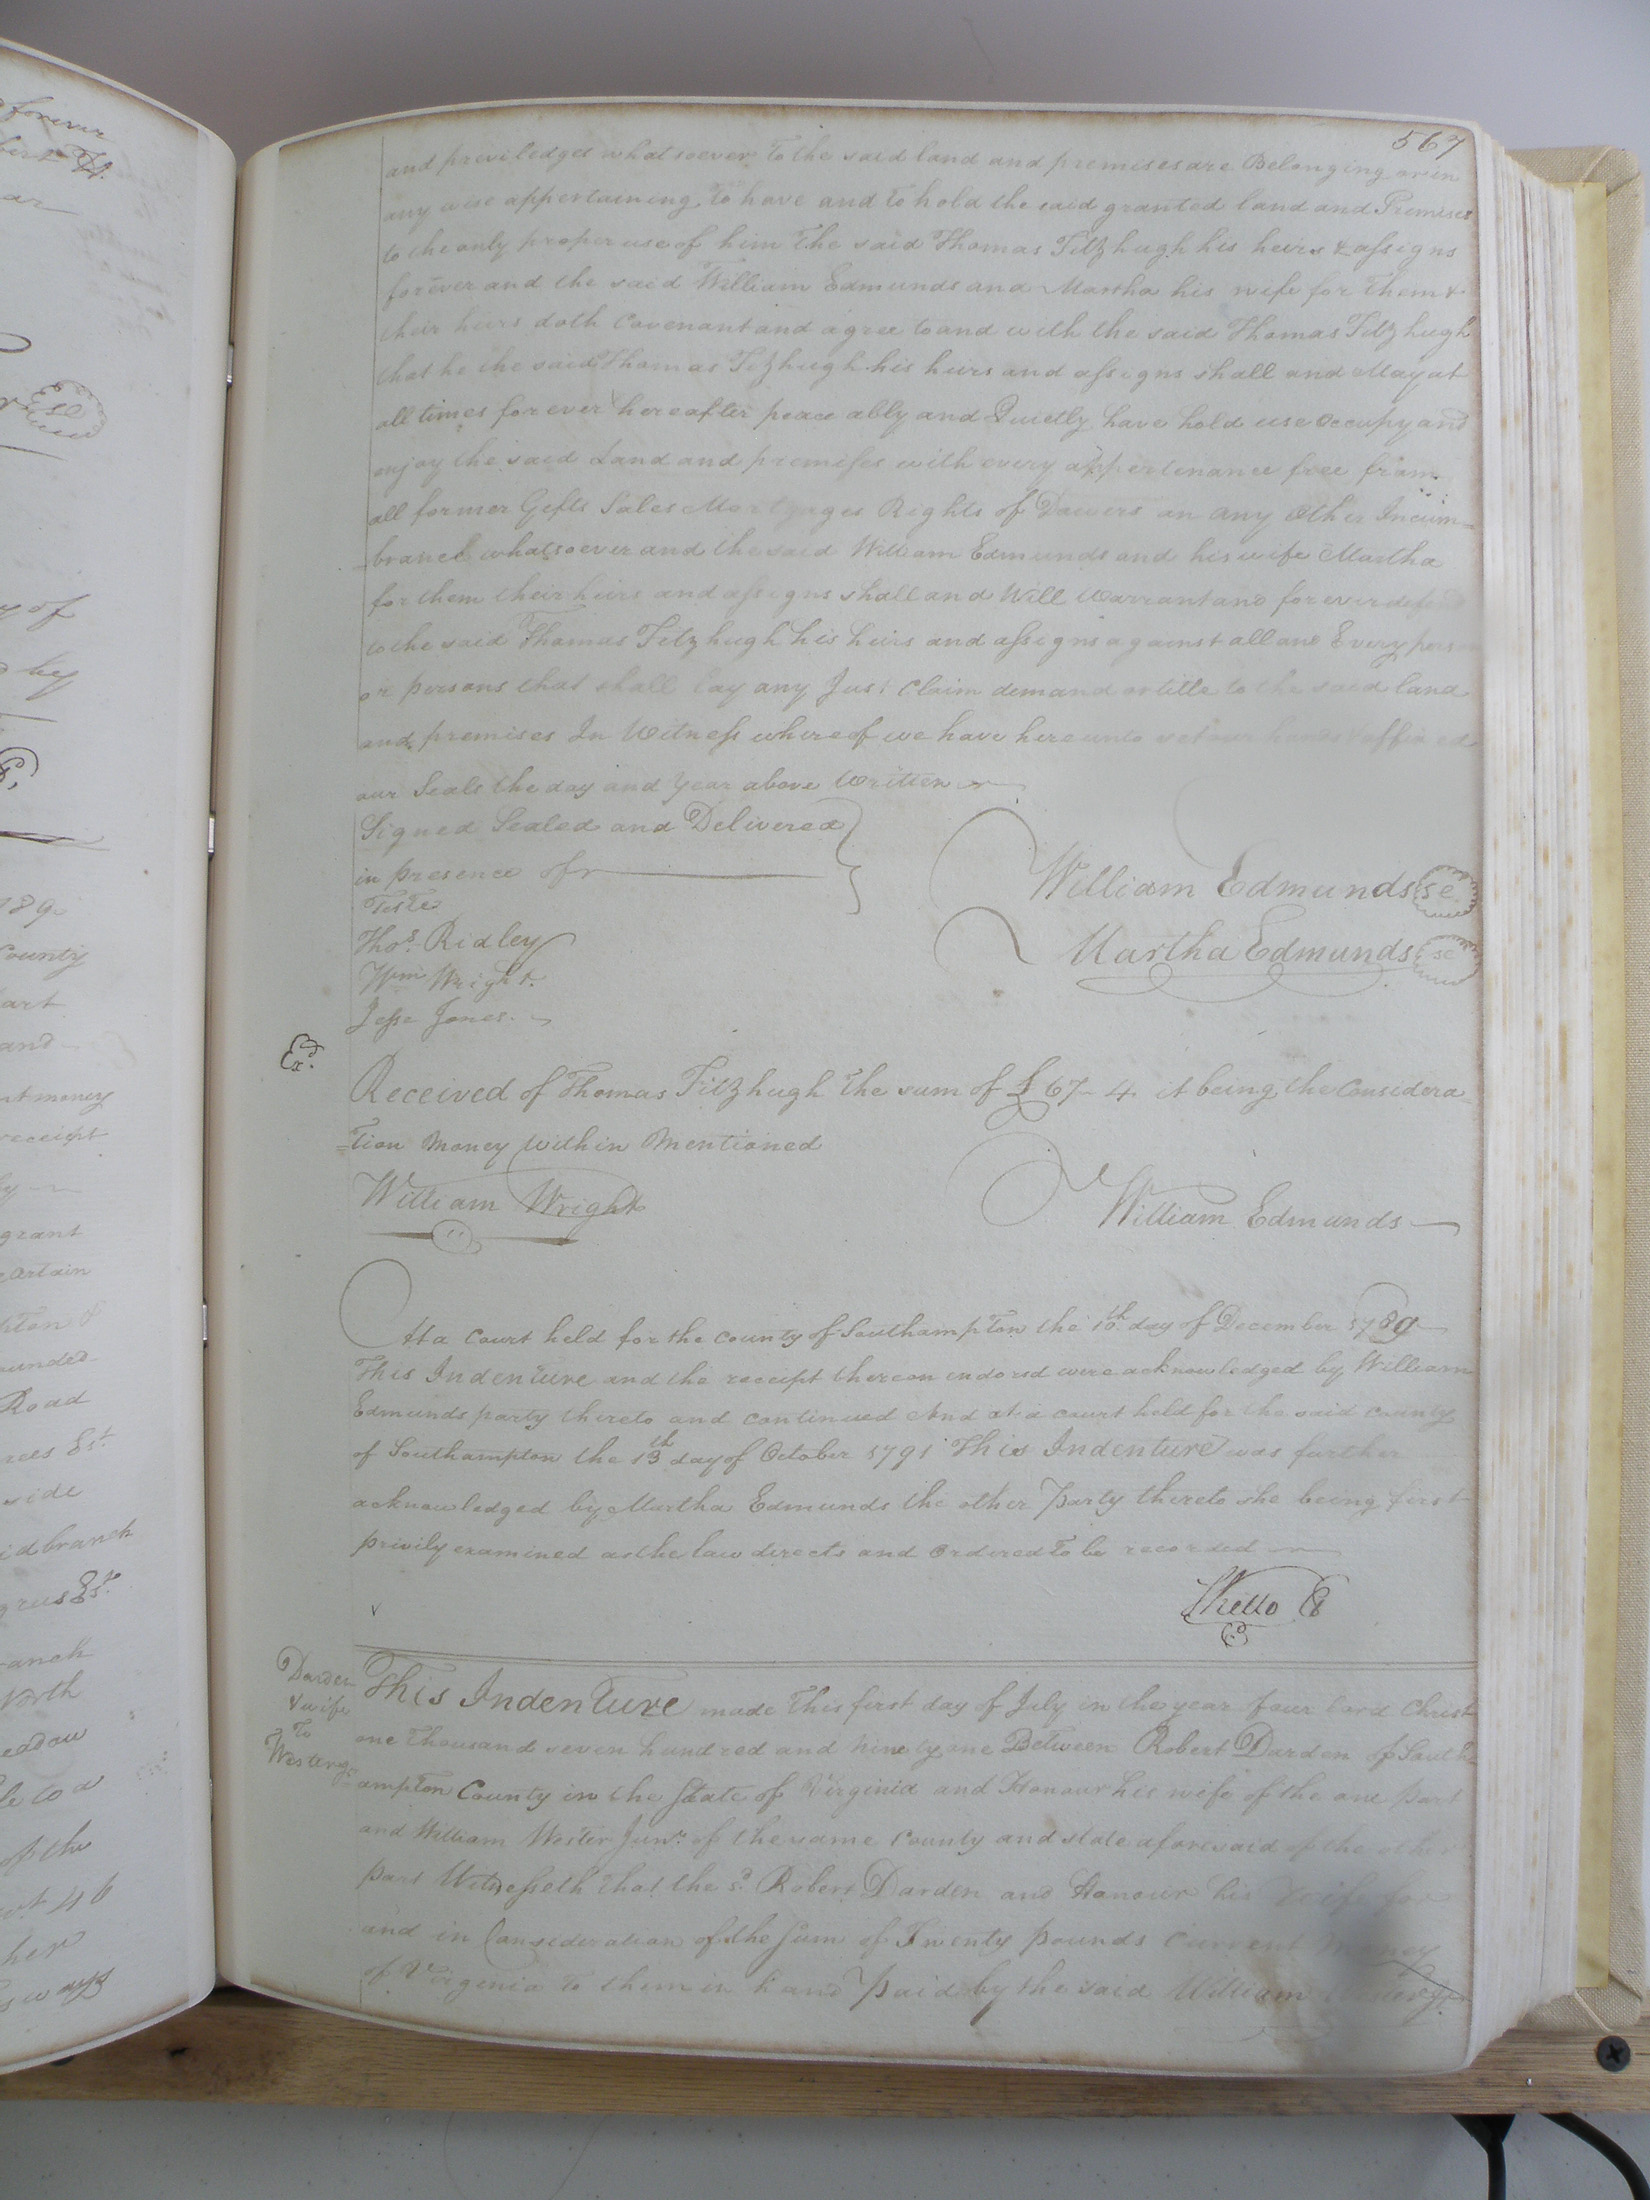 forever
ar
y of
by
189
County
art
and
nt money
receipt
by
grant
certain
pton &
ounded
Road
rees Est.
side
id branch
grus Est.
ranch
North
eadow
le to a
of the
her
567
and previledges whatsoever To the said land and premises are Belonging or in
any wise appertaining, To have and to hold the said granted land and Premises
to the only proper use of him The said Thomas Fitzhugh his heirs & assigns
forever and the said William Edmunds and Martha his wife for Them &
their heirs doth Covenant and agree to and with the said Thomas Fitzhugh
that he the said Thomas Fitzhugh his heirs and assigns shall and May at
all times for ever hereafter peace ably and Quietly have hold use occupy and
enjoy the said Land and premises with every appertenance free from
all former Gefts Sales Mortgages Rights of Dowers an any other Incum=
=brance whatsoever and the said William Edmunds and his wife Martha
for them their heirs and assigns shall and Will Warrant and forever defend
to the said Thomas Fitzhugh his heirs and assigns against all and Every person
or persons that shall lay any Just Claim demand or title to the said land
and premises In Witness whereof we have here unto set our hands & affixed
our Seals the day and Year above Written
Signed Sealed and Delivered
in presence of
Teste
Thos. Ridley
Wm Wright.
Jesse Jones.
William Edmunds se
Martha Edmunds se
Exd.
Received of Thomas Fitzhugh The sum of £ 67-4 it being the Considera=
=tion Money within Mentioned
William Wright
William Edmunds
At a Court held for the County of Southampton the 10th day of December 1789
This Indenture and the receipt thereon endorsd were acknowledged by William
Edmunds party thereto and continued And at a court held for the said County
of Southampton the 13th day of October 1791 This Indenture was further
acknowledged by Martha Edmunds the other Party thereto she being first
privily examined as the law directs and Ordered To be recorded
Darden
& wife
To
Wester
This Indenture made This first day of July in the year four lord Christ
one Thousand seven hundred and ninety one Between Robert Darden of South=
=ampton County in the State of Virginia and Honour his wife of the one Part
and William Wester Junr. of the same County and state aforesaid of the other
part Witnesseth That the sd. Robert Darden and Honour his wife for
and in Consideration of the Sum of Twenty Pounds Current Money
of Virginia to them in hand Paid by the said William Wester Jr.